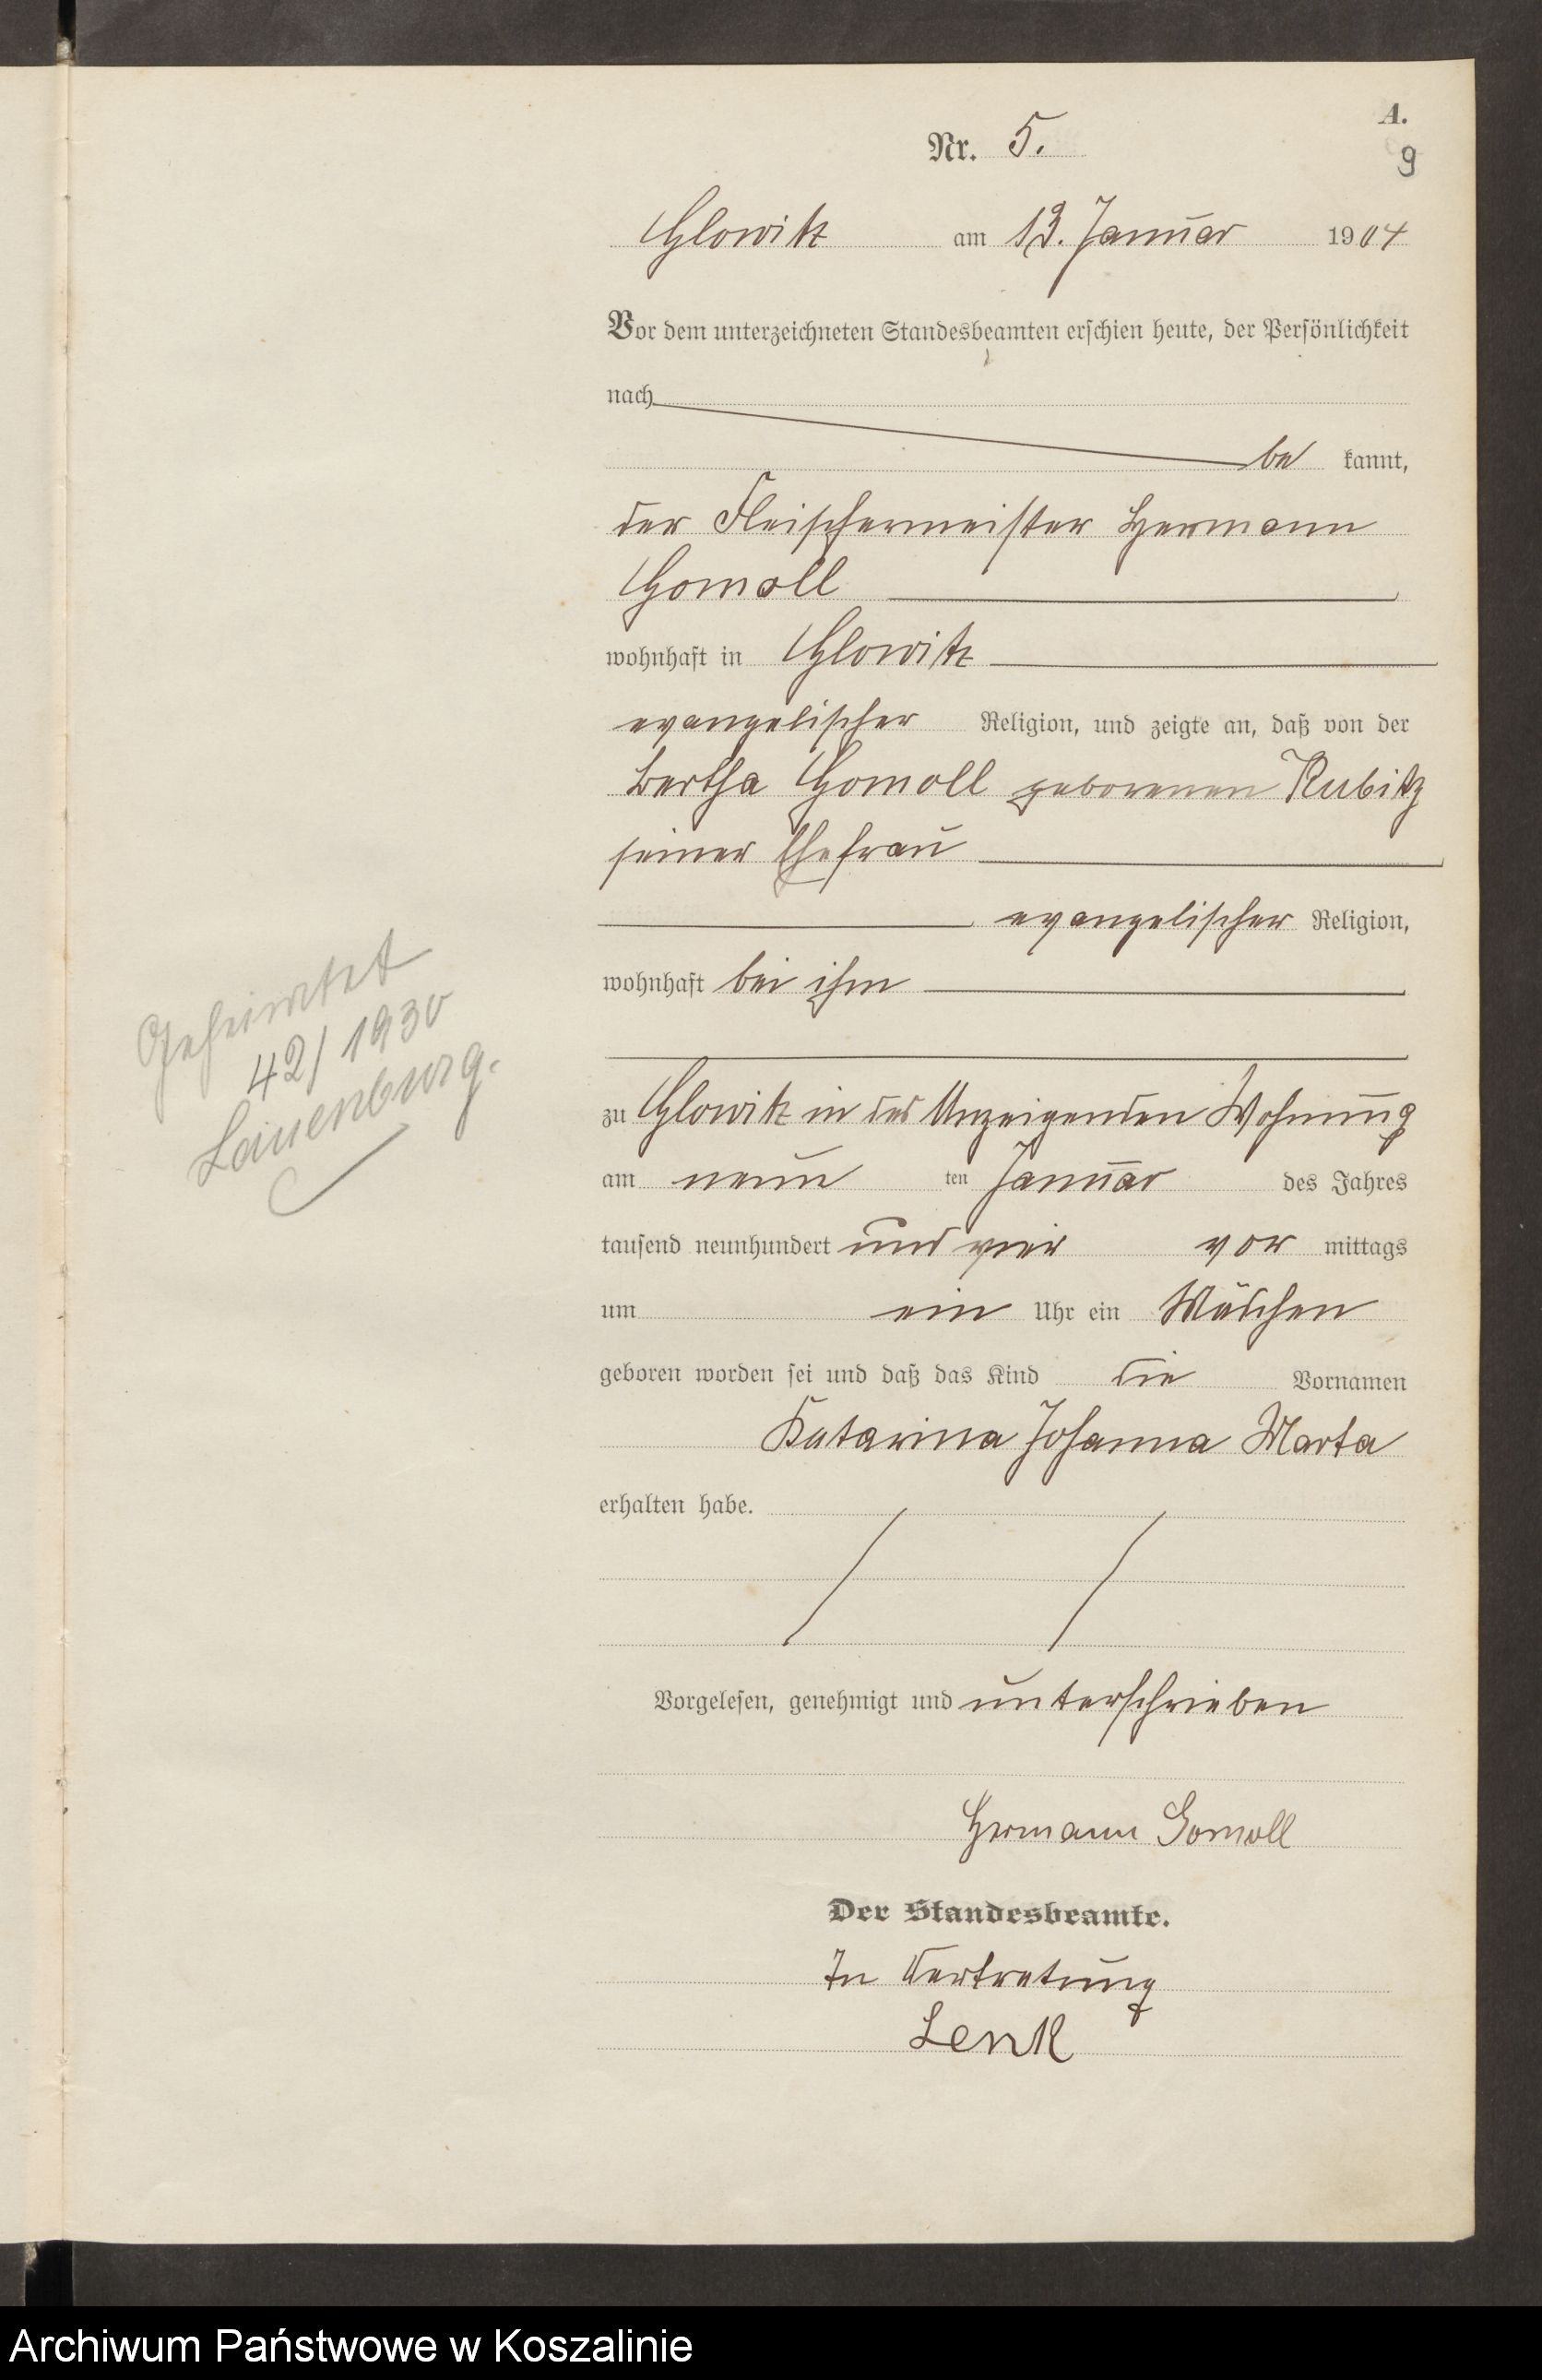 A.
Nr. 5.
9
Glowitz am 13. Januar 1904
Vor dem unterzeichneten Standesbeamten erschien heute, der Persönlichkeit
nach
be kannt,
der Fleischermeister Hermann
Gomoll
wohnhaft in Glowitz
evangelischer Religion, und zeigte an, daß von der
Bertha Gomoll geborenen Kubitz
seiner Ehefrau
evangelischer Religion,
wohnhaft bei ihm
zu Glowitz in des Anzeigenden Wohnung
am neun ten Januar des Jahres
tausend neunhundert und vier vor mittags
um ein Uhr ein Mädchen
geboren worden sei und daß das Kind die Vornamen
Katarina Johanna Marta
erhalten habe.
Vorgelesen, genehmigt und unterschrieben
Hermann Gomoll
Der Standesbeamte.
In Vertretung
Lenk
Geheiratet
42/1930
Lauenburg.
Archiwum Państwowe w Koszalinie